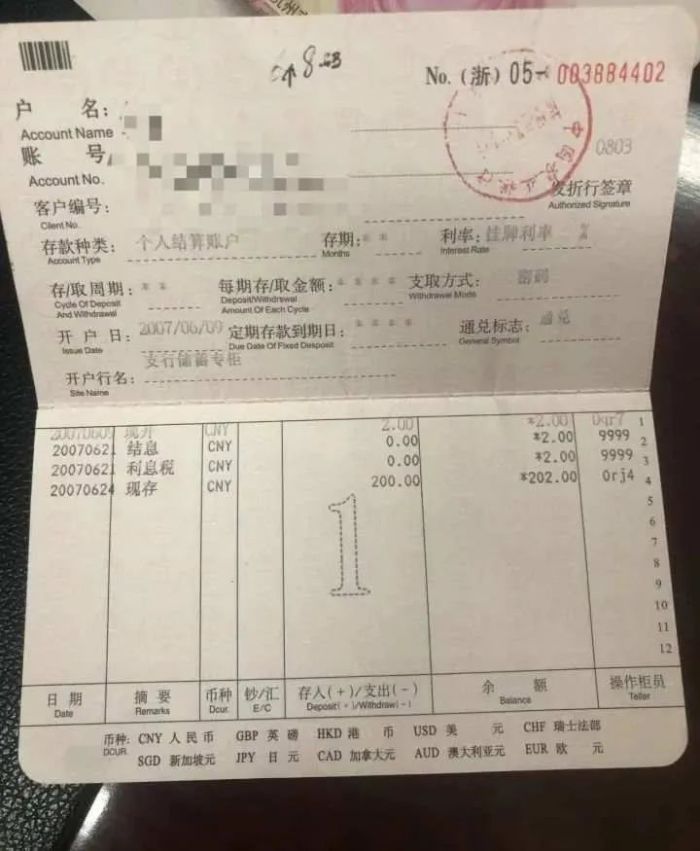 No. (浙) 05- 003884402
户 名:
Account Name
账 号
Account No.
0803
发折行签章
Authorized Signature
客户编号:
Client No.
存款种类: 个人结算账户 存期: * * 利率: 挂牌利率 %
Account Type Months Interest Rate
存/取周期: * * 每期存/取金额: * * * * 支取方式: 密码
Cycle Of Deposit And Withdrawal Deposit/Withdrawal Amount Of Each Cycle Withdrawal Mode
开 户 日: 2007/06/09 定期存款到期日: * * * * 通兑标志: 通兑
Issue Date Due Date Of Fixed Desposit General Symbol
支行储蓄专柜
开户行名:
Site Name
20070609 现开 CNY 2.00 *2.00 Dqr7 1
20070621 结息 CNY 0.00 *2.00 9999 2
20070621 利息税 CNY 0.00 *2.00 9999 3
20070624 现存 CNY 200.00 *202.00 0rj4 4
5
6
7
8
9
10
11
12
1
日 期 摘 要 币种 钞/汇 存入(+)/支出(-) 余 额 操作柜员
Date Remarks Dcur. E/C Deposit(+)/Withdraw(-) Balance Teller
币种: CNY 人民币 GBP 英 磅 HKD 港 币 USD 美 元 CHF 瑞士法郎
DCUR. SGD 新加坡元 JPY 日 元 CAD 加拿大元 AUD 澳大利亚元 EUR 欧 元